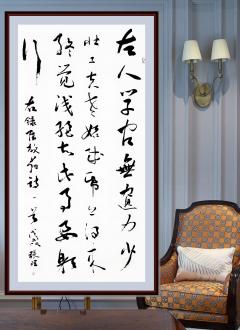 古人学问無遗力少
壮工夫老始成纸上得来
终觉浅绝知此事要躬
行
右録陆放翁詩一首戊戌